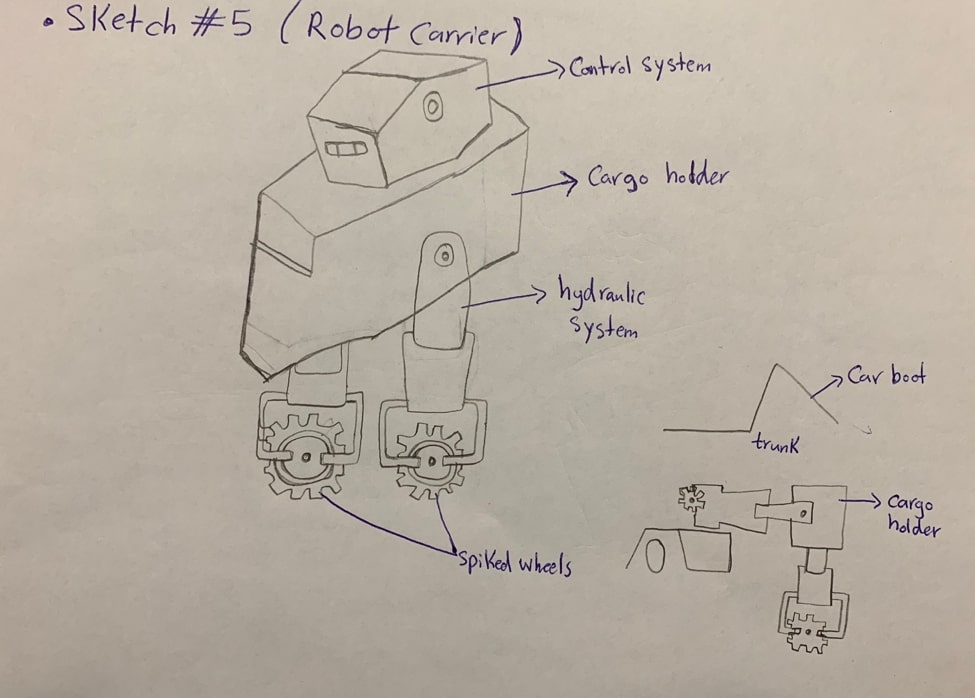 • Sketch #5 (Robot Carrier)
Control system
Cargo holder
hydraulic
system
Car boot
trunk
cargo
holder
spiked wheels